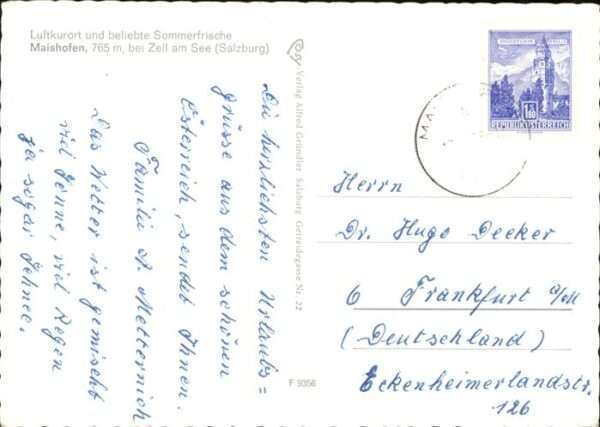 Luftkurort und beliebte Sommerfrische
Maishofen, 765 m, bei Zell am See (Salzburg)
Die herzlichsten Urlaubs=
grüsse aus dem schönen
Österreich, sendet Ihnen.
Familie A. Metternich
Das Wetter ist gemischt
viel Sonne, viel Regen
ja sogar Schnee.
Verlag Alfred Gründler Salzburg Getreidegasse Nr. 22
F 9356
1.80
REPUBLIK ÖSTERREICH
MAI
Herrn
Dr. Hugo Decker
6 Frankfurt a/M
(Deutschland)
Eckenheimerlandstr.
126